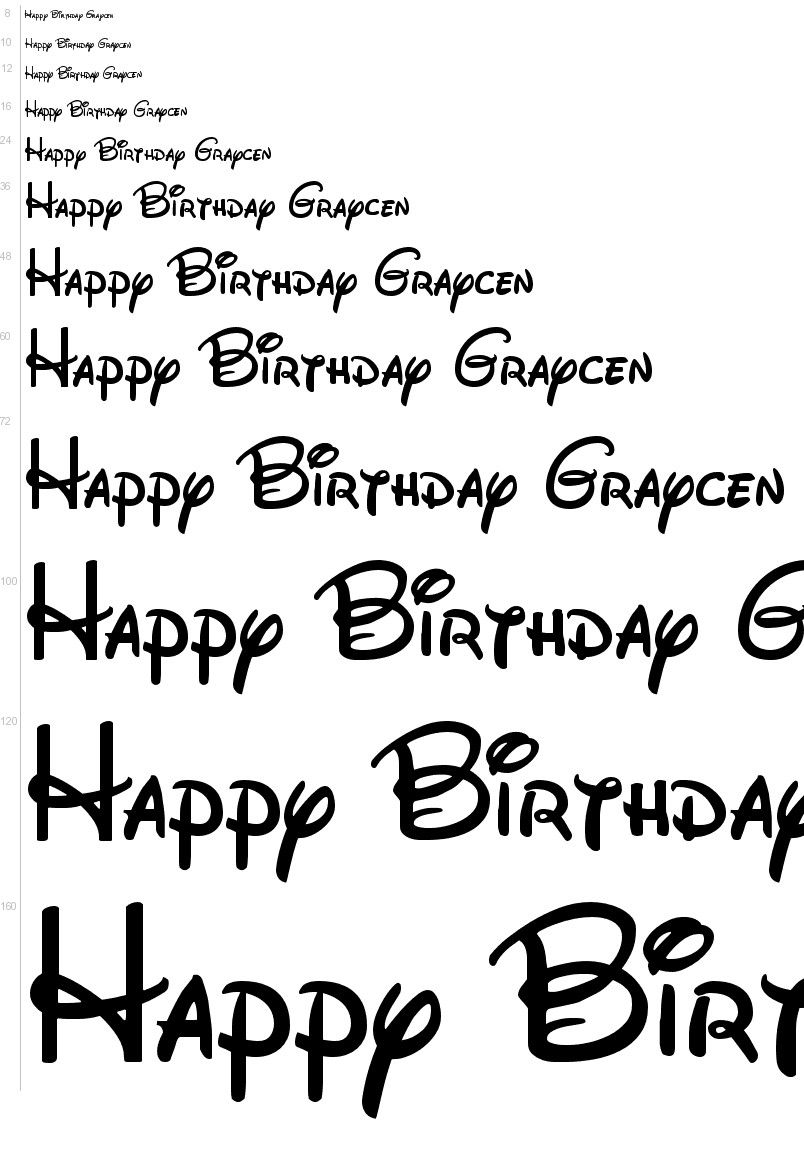 8 Happy Birthday Graycen
10 Happy Birthday Graycen
12 Happy Birthday Graycen
16 Happy Birthday Graycen
24 Happy Birthday Graycen
36 Happy Birthday Graycen
48 Happy Birthday Graycen
60 Happy Birthday Graycen
72 Happy Birthday Graycen
100 Happy Birthday G
120 Happy Birthday
160 Happy Birt